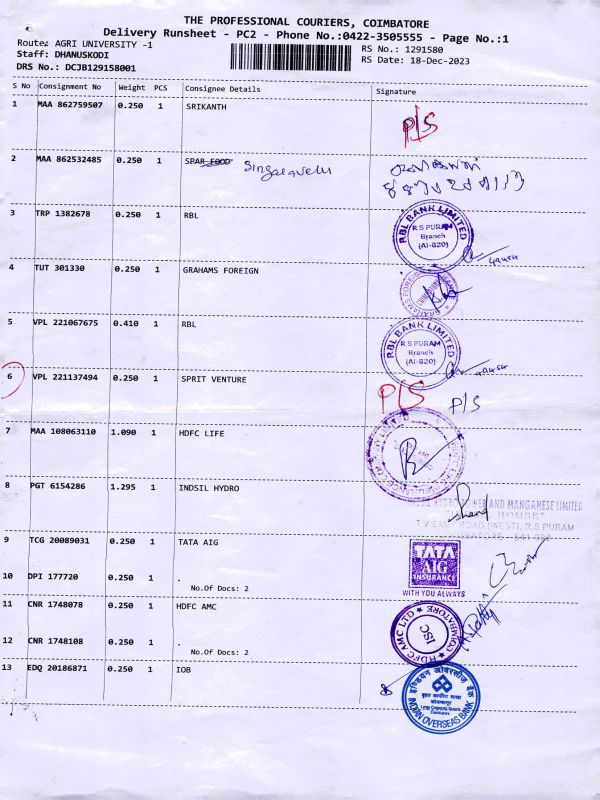 THE PROFESSIONAL COURIERS, COIMBATORE
Delivery Runsheet - PC2 - Phone No.:0422-3505555 - Page No.:1
Route: AGRI UNIVERSITY -1
RS No.: 1291580
Staff: DHANUSKODI
RS Date: 18-Dec-2023
DRS No.: DCJB129158001
S No Consignment No Weight PCS Consignee Details Signature
1 MAA 862759507 0.250 1 SRIKANTH
P/S
2 MAA 862532485 0.250 1 SPAR FOOD Singaravelu
3 TRP 1382678 0.250 1 RBL
RBL BANK LIMITED
R S PURAM
Branch
(AI-820)
4 TUT 301330 0.250 1 GRAHAMS FOREIGN
5 VPL 221067675 0.410 1 RBL
RBL BANK LIMITED
R S PURAM
Branch
(AI-820)
6 VPL 221137494 0.250 1 SPRIT VENTURE
P/S P/S
7 MAA 108063110 1.090 1 HDFC LIFE
8 PGT 6154286 1.295 1 INDSIL HYDRO
POWER AND MANGANESE LIMITED
HOUSE"
ROAD (WEST), R.S PURAM
9 TCG 20089031 0.250 1 TATA AIG
TATA
AIG
INSURANCE
WITH YOU ALWAYS
10 DPI 177720 0.250 1 .
No.Of Docs: 2
11 CNR 1748078 0.250 1 HDFC AMC
HDFC AMC LTD
COIMBATORE
ISC
12 CNR 1748108 0.250 1 .
No.Of Docs: 2
13 EDQ 20186871 0.250 1 IOB
इण्डियन ओवरसीज़ बैंक
INDIAN OVERSEAS BANK